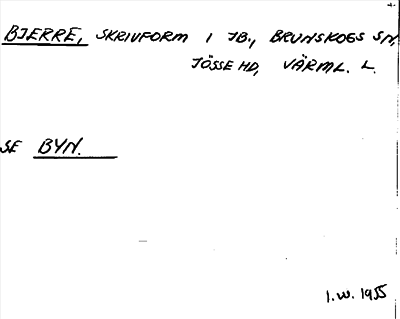 BJERRE, SKRIVFORM I JB., BRUNSKOGS SN,
JÖSSE HD, VÄRML. L.
SE BYN.
I.W. 1955